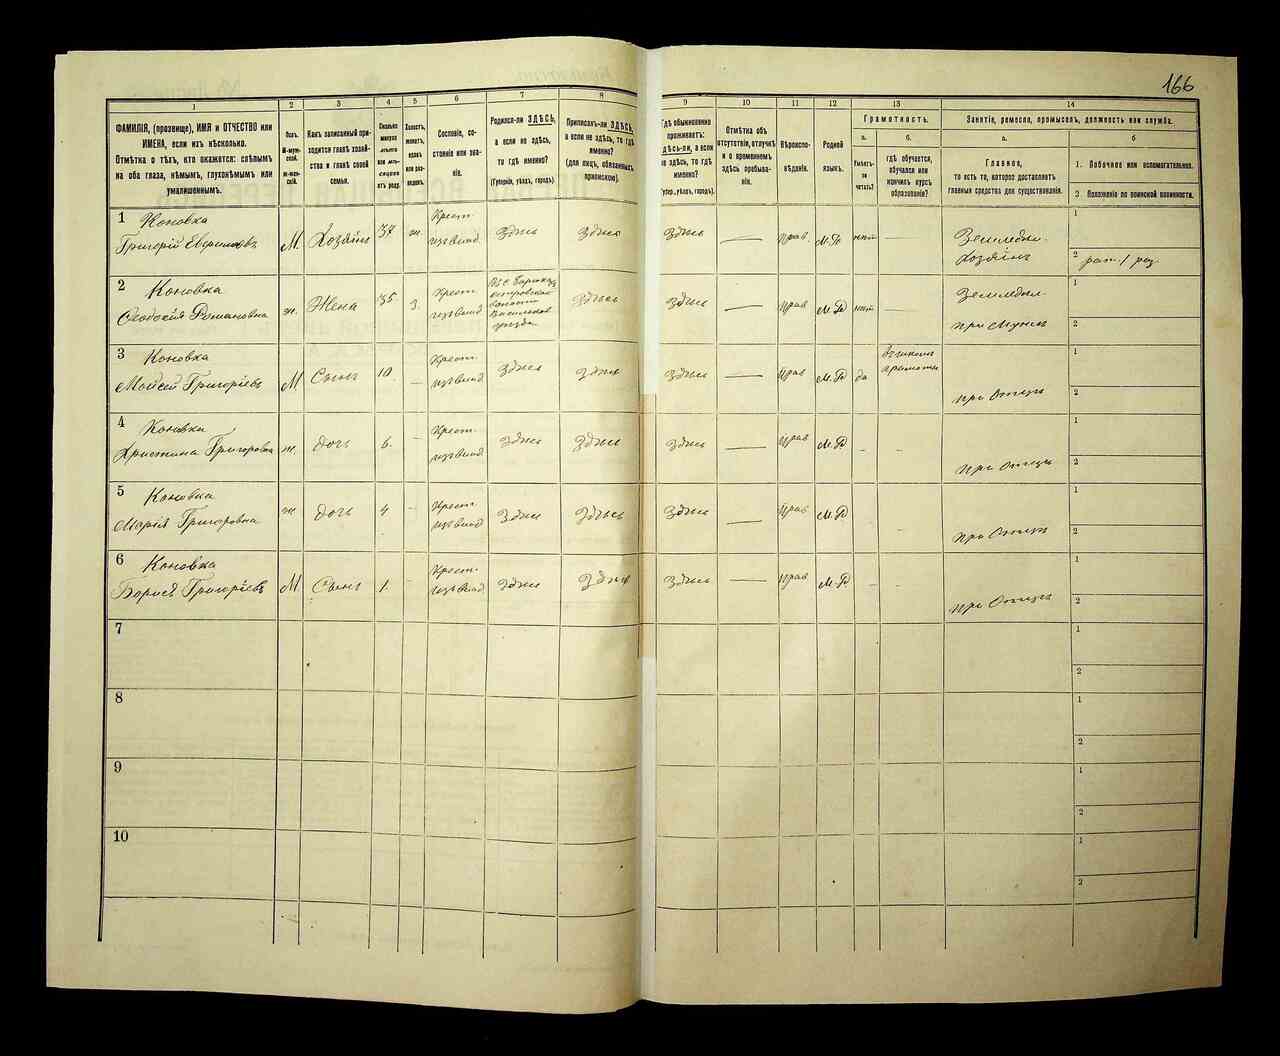 166
1
2
3
4
5
6
7
8
9
10
11
12
13
14
ФАМИЛІЯ, (прозвище), ИМЯ и ОТЧЕСТВО или
ИМЕНА, если ихъ нѣсколько.
Отмѣтка о тѣхъ, кто окажется: слѣпымъ
на оба глаза, нѣмымъ, глухонѣмымъ или
умалишеннымъ.
Полъ.
М-муж-
ской.
Ж-жен-
скій.
Какъ записанный при-
ходится главѣ хозяй-
ства и главѣ своей
семьи.
Сколько
минуло
лѣтъ
или мѣ-
сяцевъ
отъ роду.
Холостъ,
женатъ,
вдовъ
или раз-
веденъ.
Сословіе, со-
стояніе или зва-
ніе.
Родился-ли ЗДѢСЬ,
а если не здѣсь,
то гдѣ именно?
(Губернія, уѣздъ, городъ).
Приписанъ-ли ЗДѢСЬ,
а если не здѣсь, то гдѣ
именно?
(для лицъ, обязанныхъ
припискою).
Гдѣ обыкновенно
проживаетъ:
здѣсь-ли, а если
не здѣсь, то гдѣ
именно?
(Губер., уѣздъ, городъ).
Отмѣтка объ
отсутствіи, отлучкѣ
и о временномъ
здѣсь пребыва-
ніи.
Вѣроиспо-
вѣданіе.
Родной
языкъ.
Грамотность.
а.
б.
Умѣетъ-
ли
читать?
гдѣ обучается,
обучался или
кончилъ курсъ
образованія?
Занятіе, ремесло, промыселъ, должность или служба.
а.
б
Главное,
то есть то, которое доставляетъ
главныя средства для существованія.
1. Побочное или вспомогательное.
2 Положеніе по воинской повинности.
1 Коновка
Григорій М. Хозяинъ 37 ж. Крест. Здѣсь Здѣсь Здѣсь — Прав. М.Р. нѣтъ Земледѣл. Хозяинъ 1 2
2 Коновка
Романовна ж. Жена 35 З. Крест. Здѣсь Здѣсь — Прав М.Р. нѣтъ — Земледѣл. при Мужѣ 1 2
3 Коновка
Мойсей Григоріевъ М Сынъ 10. — Крест. Здѣсь Здѣсь Здѣсь — Прав М.Р. да при Отцѣ 1 2
4 Коновка
Христина Григоровна ж. дочь 6. — Крест. Здѣсь Здѣсь Здѣсь — Прав М.Р. - - при Отцѣ 1 2
5 Коновка
Марія Григоровна ж дочь 4 — Крест. Здѣсь Здѣсь Здѣсь — Прав М.Р. при Отцѣ 1 2
6 Коновка
Борисъ Григоріевъ М Сынъ 1. Крест. Здѣсь Здѣсь Здѣсь — Прав М.Р. - при Отцѣ 1 2
7 1 2
8 1 2
9 1 2
10 1 2